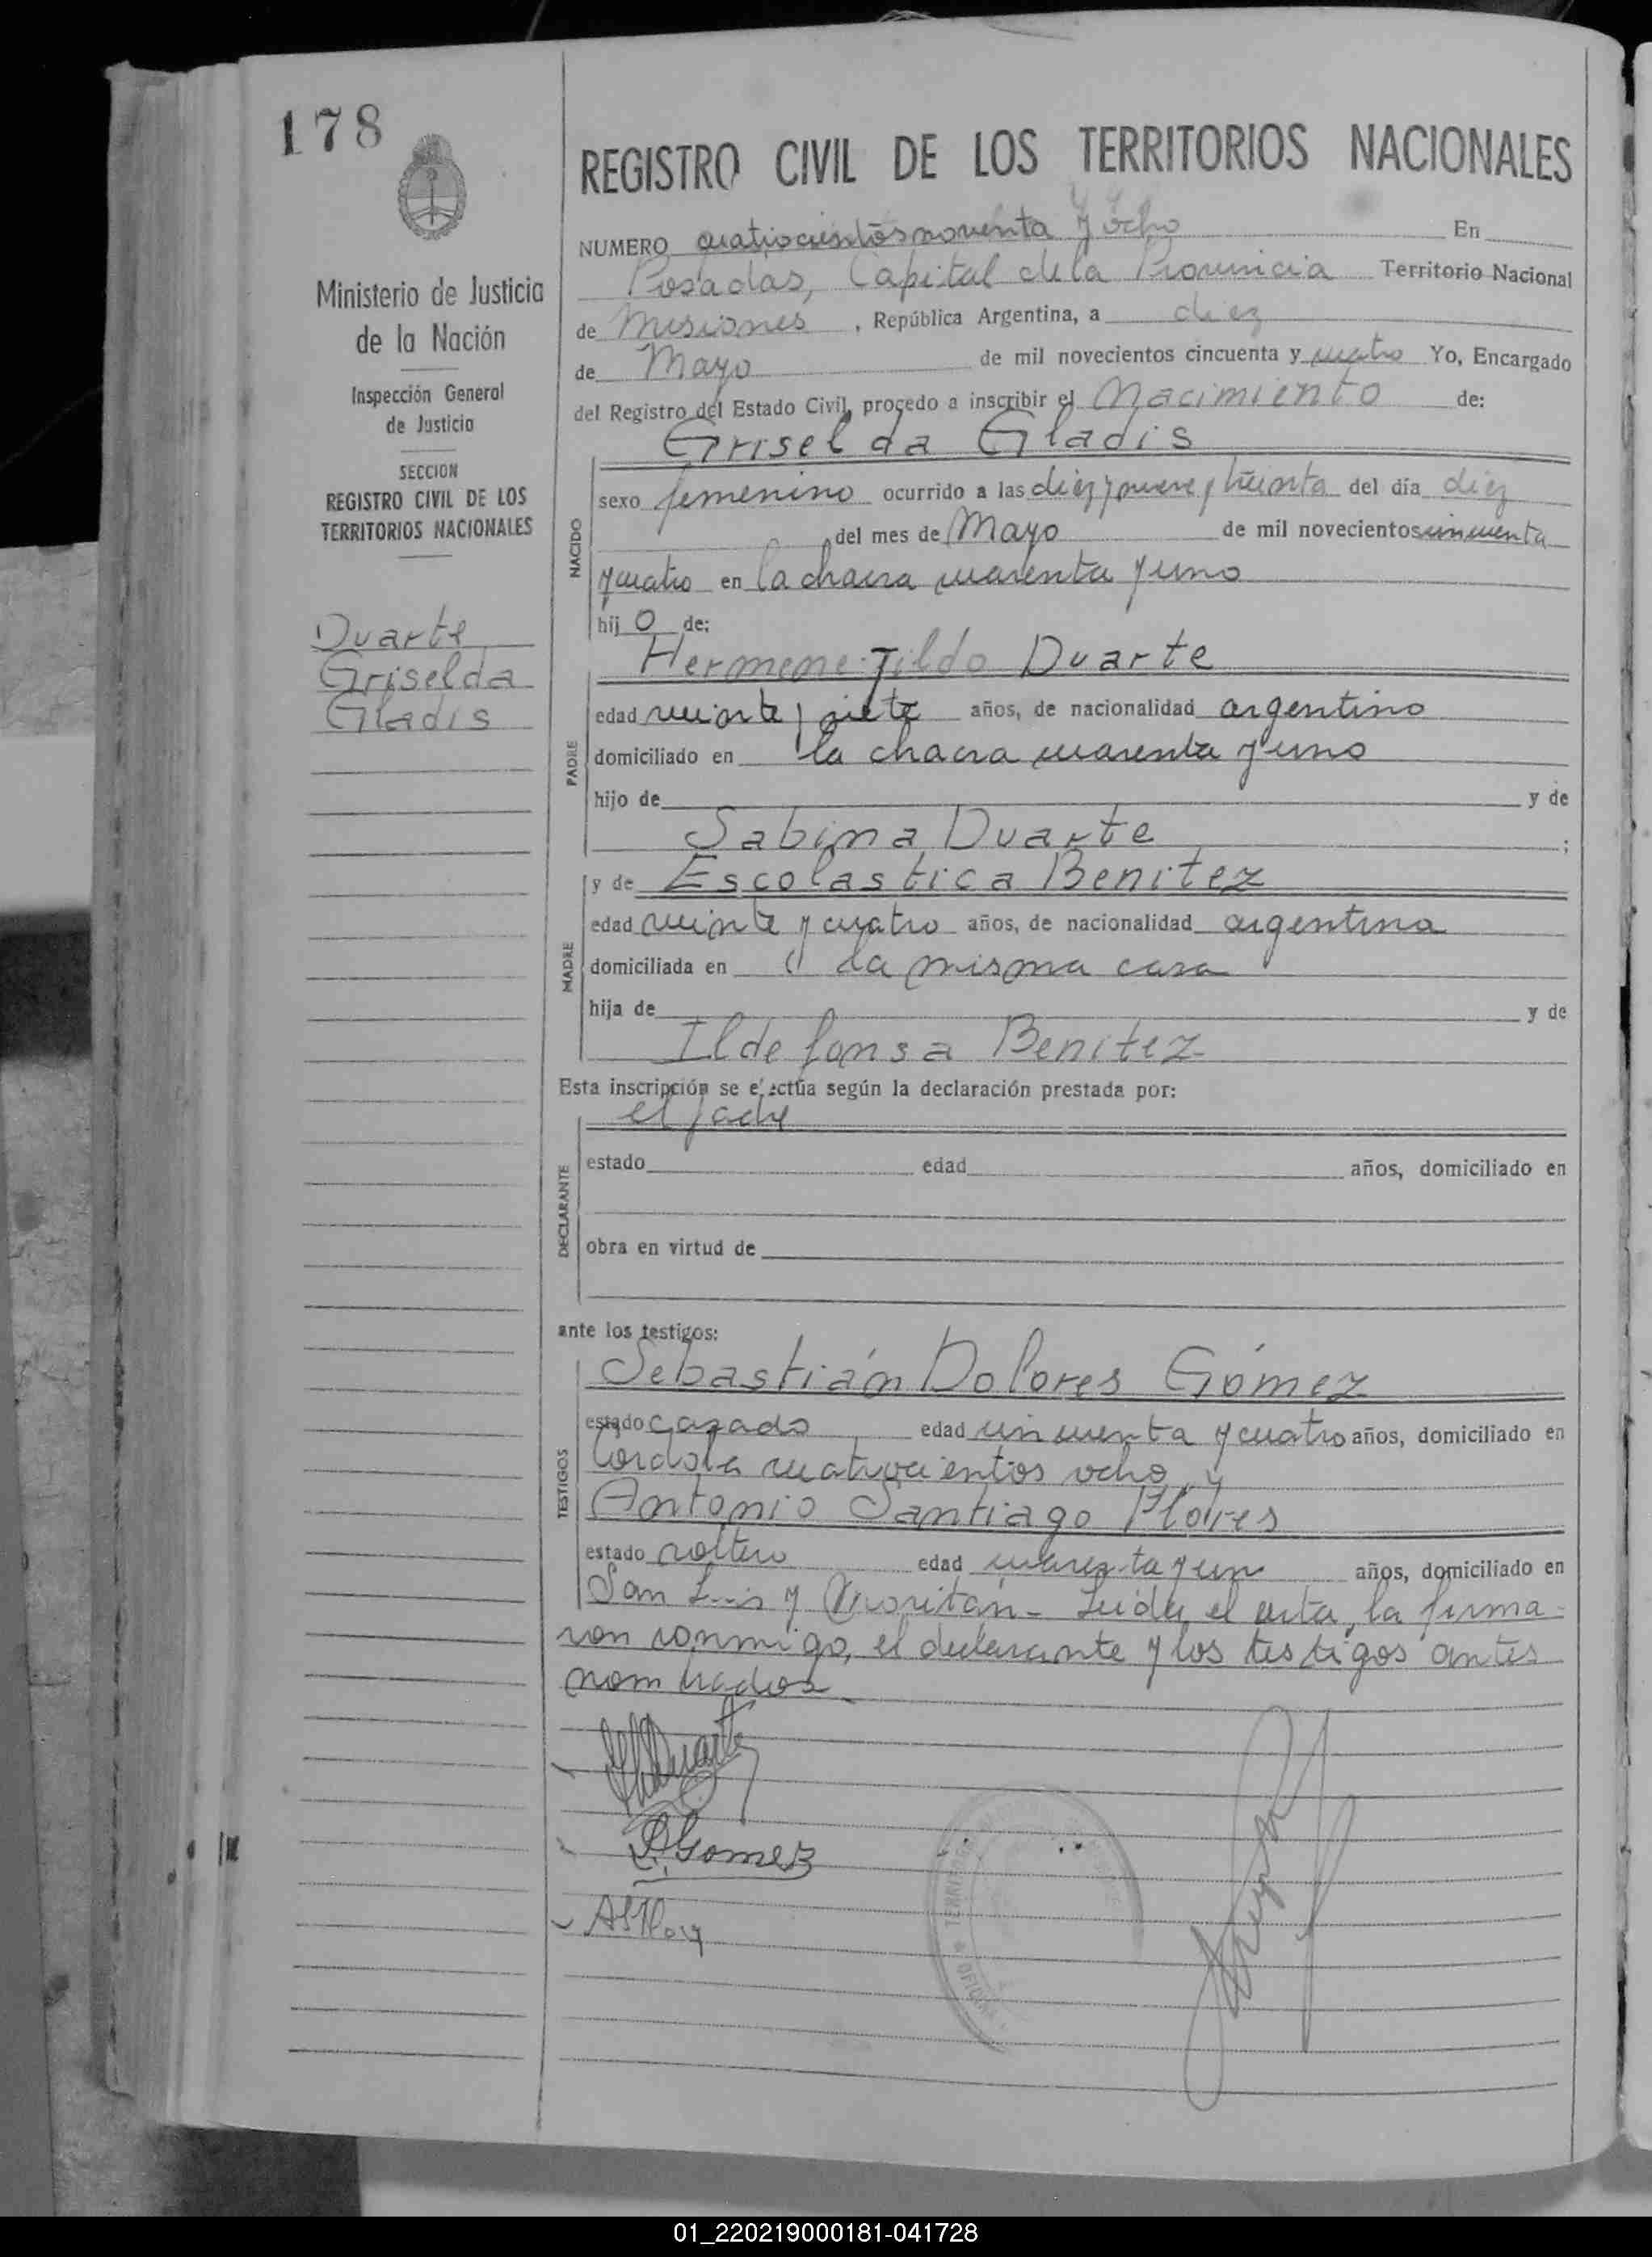 178
Ministerio de Justicia
de la Nación
Inspección General
de Justicia
SECCION
REGISTRO CIVIL DE LOS
TERRITORIOS NACIONALES
Duarte
Griselda
Gladis
REGISTRO CIVIL DE LOS TERRITORIOS NACIONALES
NUMERO cuatrocientos noventa y ocho En
Posadas, Capital de la Provincia Territorio Nacional
de Misiones, República Argentina, a diez
de Mayo de mil novecientos cincuenta y cuatro Yo, Encargado
del Registro del Estado Civil, procedo a inscribir el Nacimiento de:
Griselda Gladis
NACIDO
sexo femenino ocurrido a las diez y nueve y treinta del día diez
del mes de Mayo de mil novecientos cincuenta
y cuatro en la chacra cuarenta y uno
hij o de:
Hermenegildo Duarte
PADRE
edad veinte y siete años, de nacionalidad argentino
domiciliado en la chacra cuarenta y uno
hijo de y de
Sabina Duarte ;
y de Escolastica Benitez
MADRE
edad veinte y cuatro años, de nacionalidad argentina
domiciliada en la misma casa
hija de y de
Ildefonsa Benitez
Esta inscripción se efectúa según la declaración prestada por:
el padre
DECLARANTE
estado edad años, domiciliado en
obra en virtud de
ante los testigos:
Sebastián Dolores Gómez
TESTIGOS
estado casado edad cincuenta y cuatro años, domiciliado en
Cordoba cuatrocientos ocho y
Antonio Santiago Flores
estado soltero edad cuarenta y un años, domiciliado en
San Luis y Moritán - Leida el acta, la firma-
ron conmigo, el declarante y los testigos antes
nombrados
HDuarte
Gomez
OFICINA
01_220219000181-041728